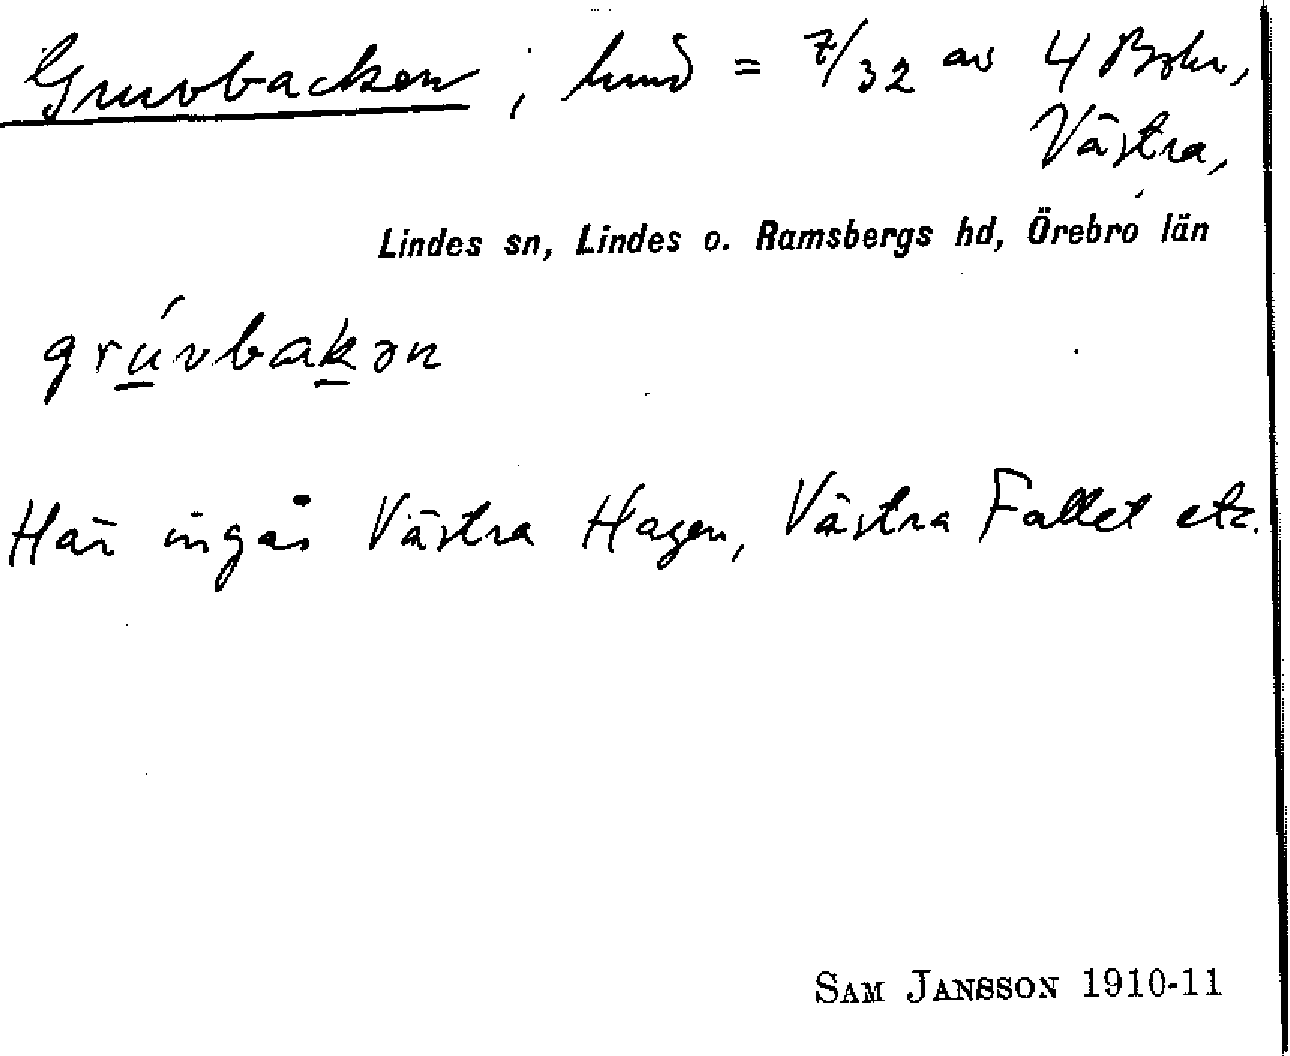 Gruvbacken, hmd = 7/32 av 4
Västra,
Lindes sn, Lindes o. Ramsbergs hd, Örebro län
grúvbakən
Här ingår Västra Hagen, Västra Fallet etc.
SAM JANSSON 1910-11